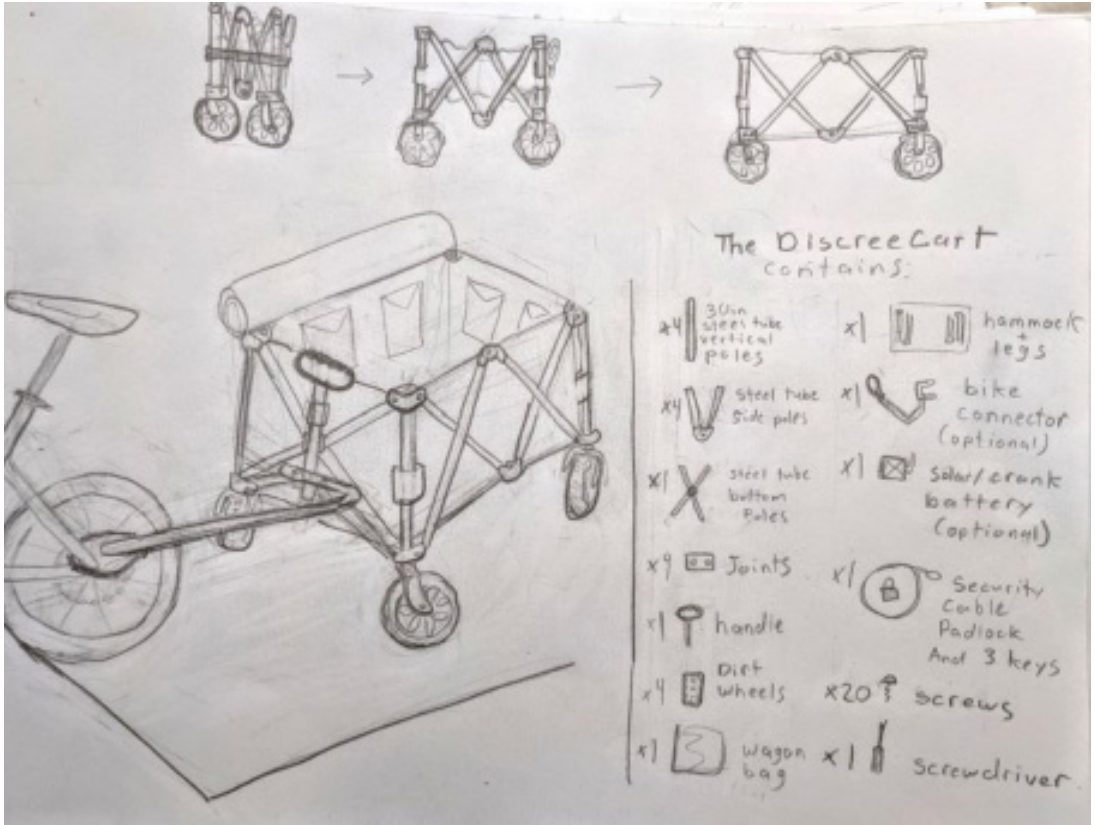 The DiscreeCart
contains:
x4 30in
steel tube
vertical
poles
x4 steel tube
side poles
x1 steel tube
bottom
Poles
x9 Joints
x1 handle
x4 Dirt
wheels
x1 wagon
bag
x1 hammock
+
legs
x1 bike
connector
(optional)
x1 Solar/crank
battery
(optional)
x1 Security
Cable
Padlock
And 3 keys
x20 screws
x1 screwdriver